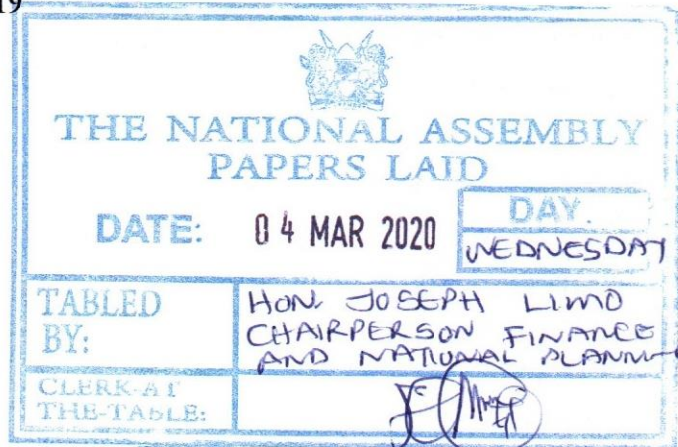 19
THE NATIONAL ASSEMBLY
PAPERS LAID
DATE: 04 MAR 2020
DAY.
WEDNESDAY
TABLED BY:
HON. JOSEPH LIMO
CHAIRPERSON FINANCE
AND NATIONAL PLANNING
CLERK-AT THE-TABLE: